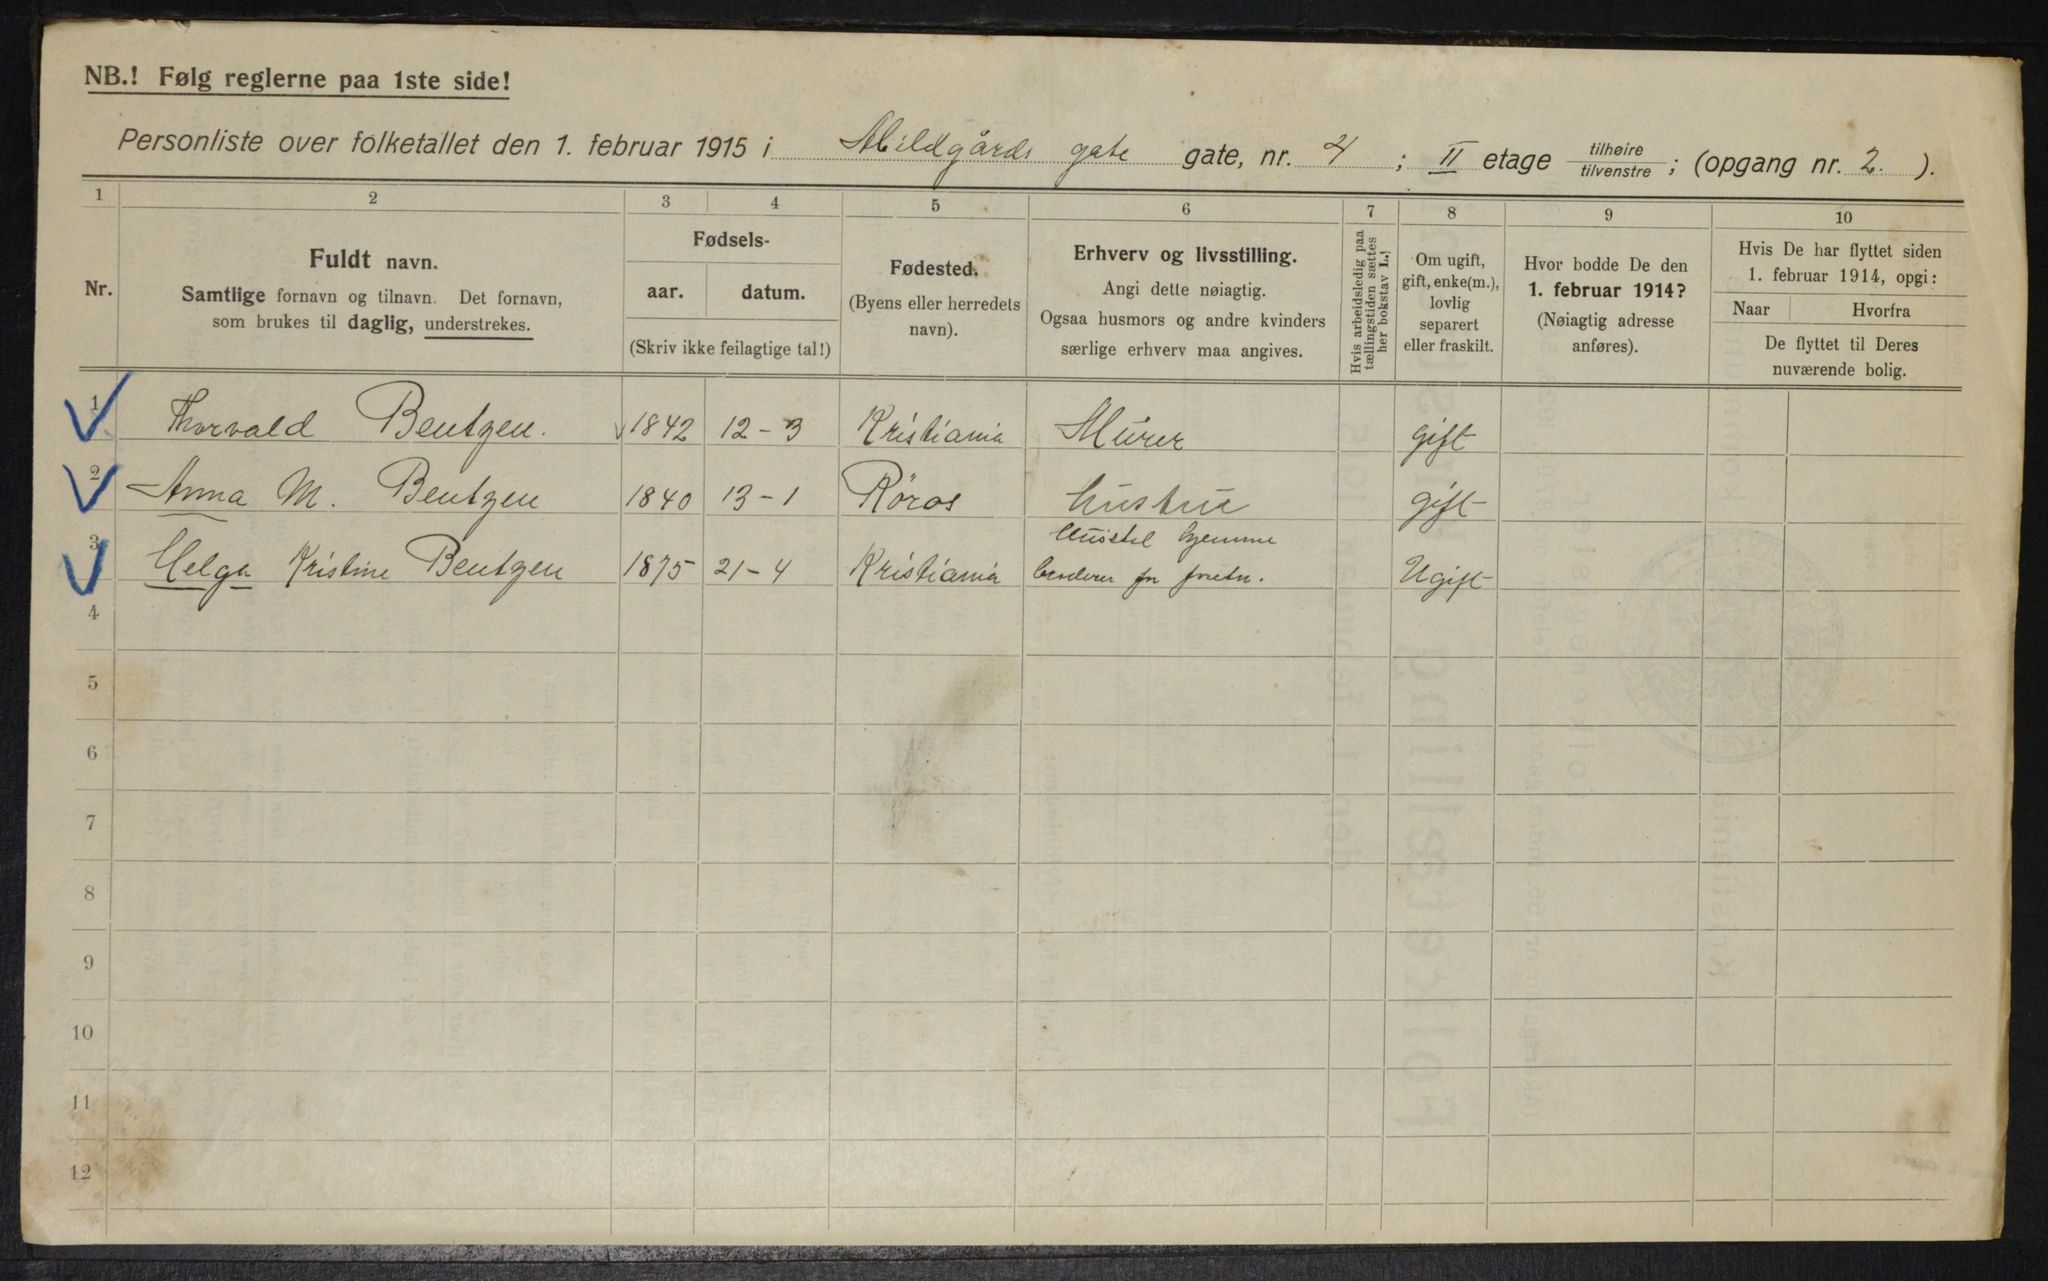 NB.! Følg reglerne paa 1ste side!
Personliste over folketallet den 1. februar 1915 i Abildgårds gate gate, nr. 4 ; II etage tilhøire tilvenstre ; (opgang nr. 2. ).
1 2 3 4 5 6 7 8 9 10
Nr.
Fuldt navn.
Samtlige fornavn og tilnavn. Det fornavn,
som brukes til daglig, understrekes.
Fødsels-
aar. datum.
(Skriv ikke feilagtige tal!)
Fødested.
(Byens eller herredets
navn).
Erhverv og livsstilling.
Angi dette nøiagtig.
Ogsaa husmors og andre kvinders
særlige erhverv maa angives.
Hvis arbeidsledig paa
tællingstiden sættes
her bokstav L.!
Om ugift,
gift, enke(m.),
lovlig
separert
eller fraskilt.
Hvor bodde De den
1. februar 1914?
(Nøiagtig adresse
anføres).
Hvis De har flyttet siden
1. februar 1914, opgi:
Naar Hvorfra
De flyttet til Deres
nuværende bolig.
1 Thorvald Bentzen. 1842 12-3 Kristiania Murer gift
2 Anna M. Bentzen 1840 13-1 Røros hustru gift
Husstel hjemme
3 Helga Kristine Bentzen 1875 21-4 Kristiania broderer for foretn. Ugift
4
5
6
7
8
9
10
11
12